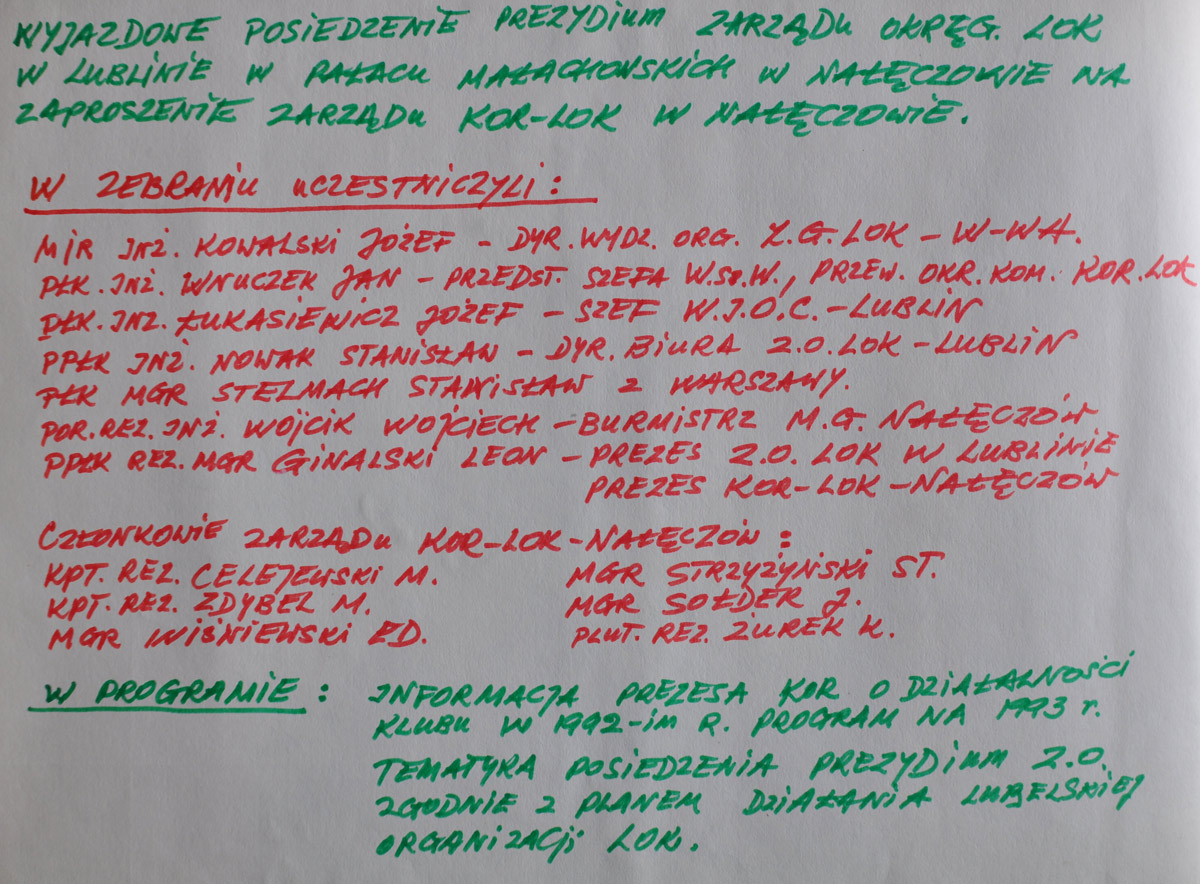 WYJAZDOWE POSIEDZENIE PREZYDIUM ZARZĄDU OKRĘG. LOK
W LUBLINIE W PAŁACU MAŁACHOWSKICH W NAŁĘCZOWIE NA
ZAPROSZENIE ZARZĄDU KOR-LOK W NAŁĘCZOWIE.
W ZEBRANIU UCZESTNICZYLI:
MJR INŻ. KOWALSKI JÓZEF - DYR. WYDZ. ORG. Z.G. LOK - W-WA.
PŁK. INŻ. WNUCZEK JAN - PRZEDST. SZEFA W.Sz.W., PRZEW. OKR. KOM. KOR. LOK
PŁK. INŻ. ŁUKASIEWICZ JÓZEF - SZEF W.I.O.C. - LUBLIN
PPŁK INŻ. NOWAK STANISŁAW - DYR. BIURA Z.O. LOK - LUBLIN
PŁK MGR STELMACH STANISŁAW Z WARSZAWY.
POR. REZ. INŻ. WÓJCIK WOJCIECH - BURMISTRZ M.G. NAŁĘCZÓW
PPŁK REZ. MGR GINALSKI LEON - PREZES Z.O. LOK W LUBLINIE
PREZES KOR-LOK - NAŁĘCZÓW
CZŁONKOWIE ZARZĄDU KOR-LOK - NAŁĘCZÓW:
KPT. REZ. CELEJEWSKI M. MGR STRZYŻYŃSKI ST.
KPT. REZ. ZDYBEL M. MGR SOŁDEK J.
MGR WIŚNIEWSKI ED. PLUT. REZ. ŻUREK K.
W PROGRAMIE: INFORMACJA PREZESA KOR O DZIAŁALNOŚCI
KLUBU W 1992-IM R. PROGRAM NA 1993 r.
TEMATYKA POSIEDZENIA PREZYDIUM Z.O.
ZGODNIE Z PLANEM DZIAŁANIA LUBELSKIEJ
ORGANIZACJI LOK.